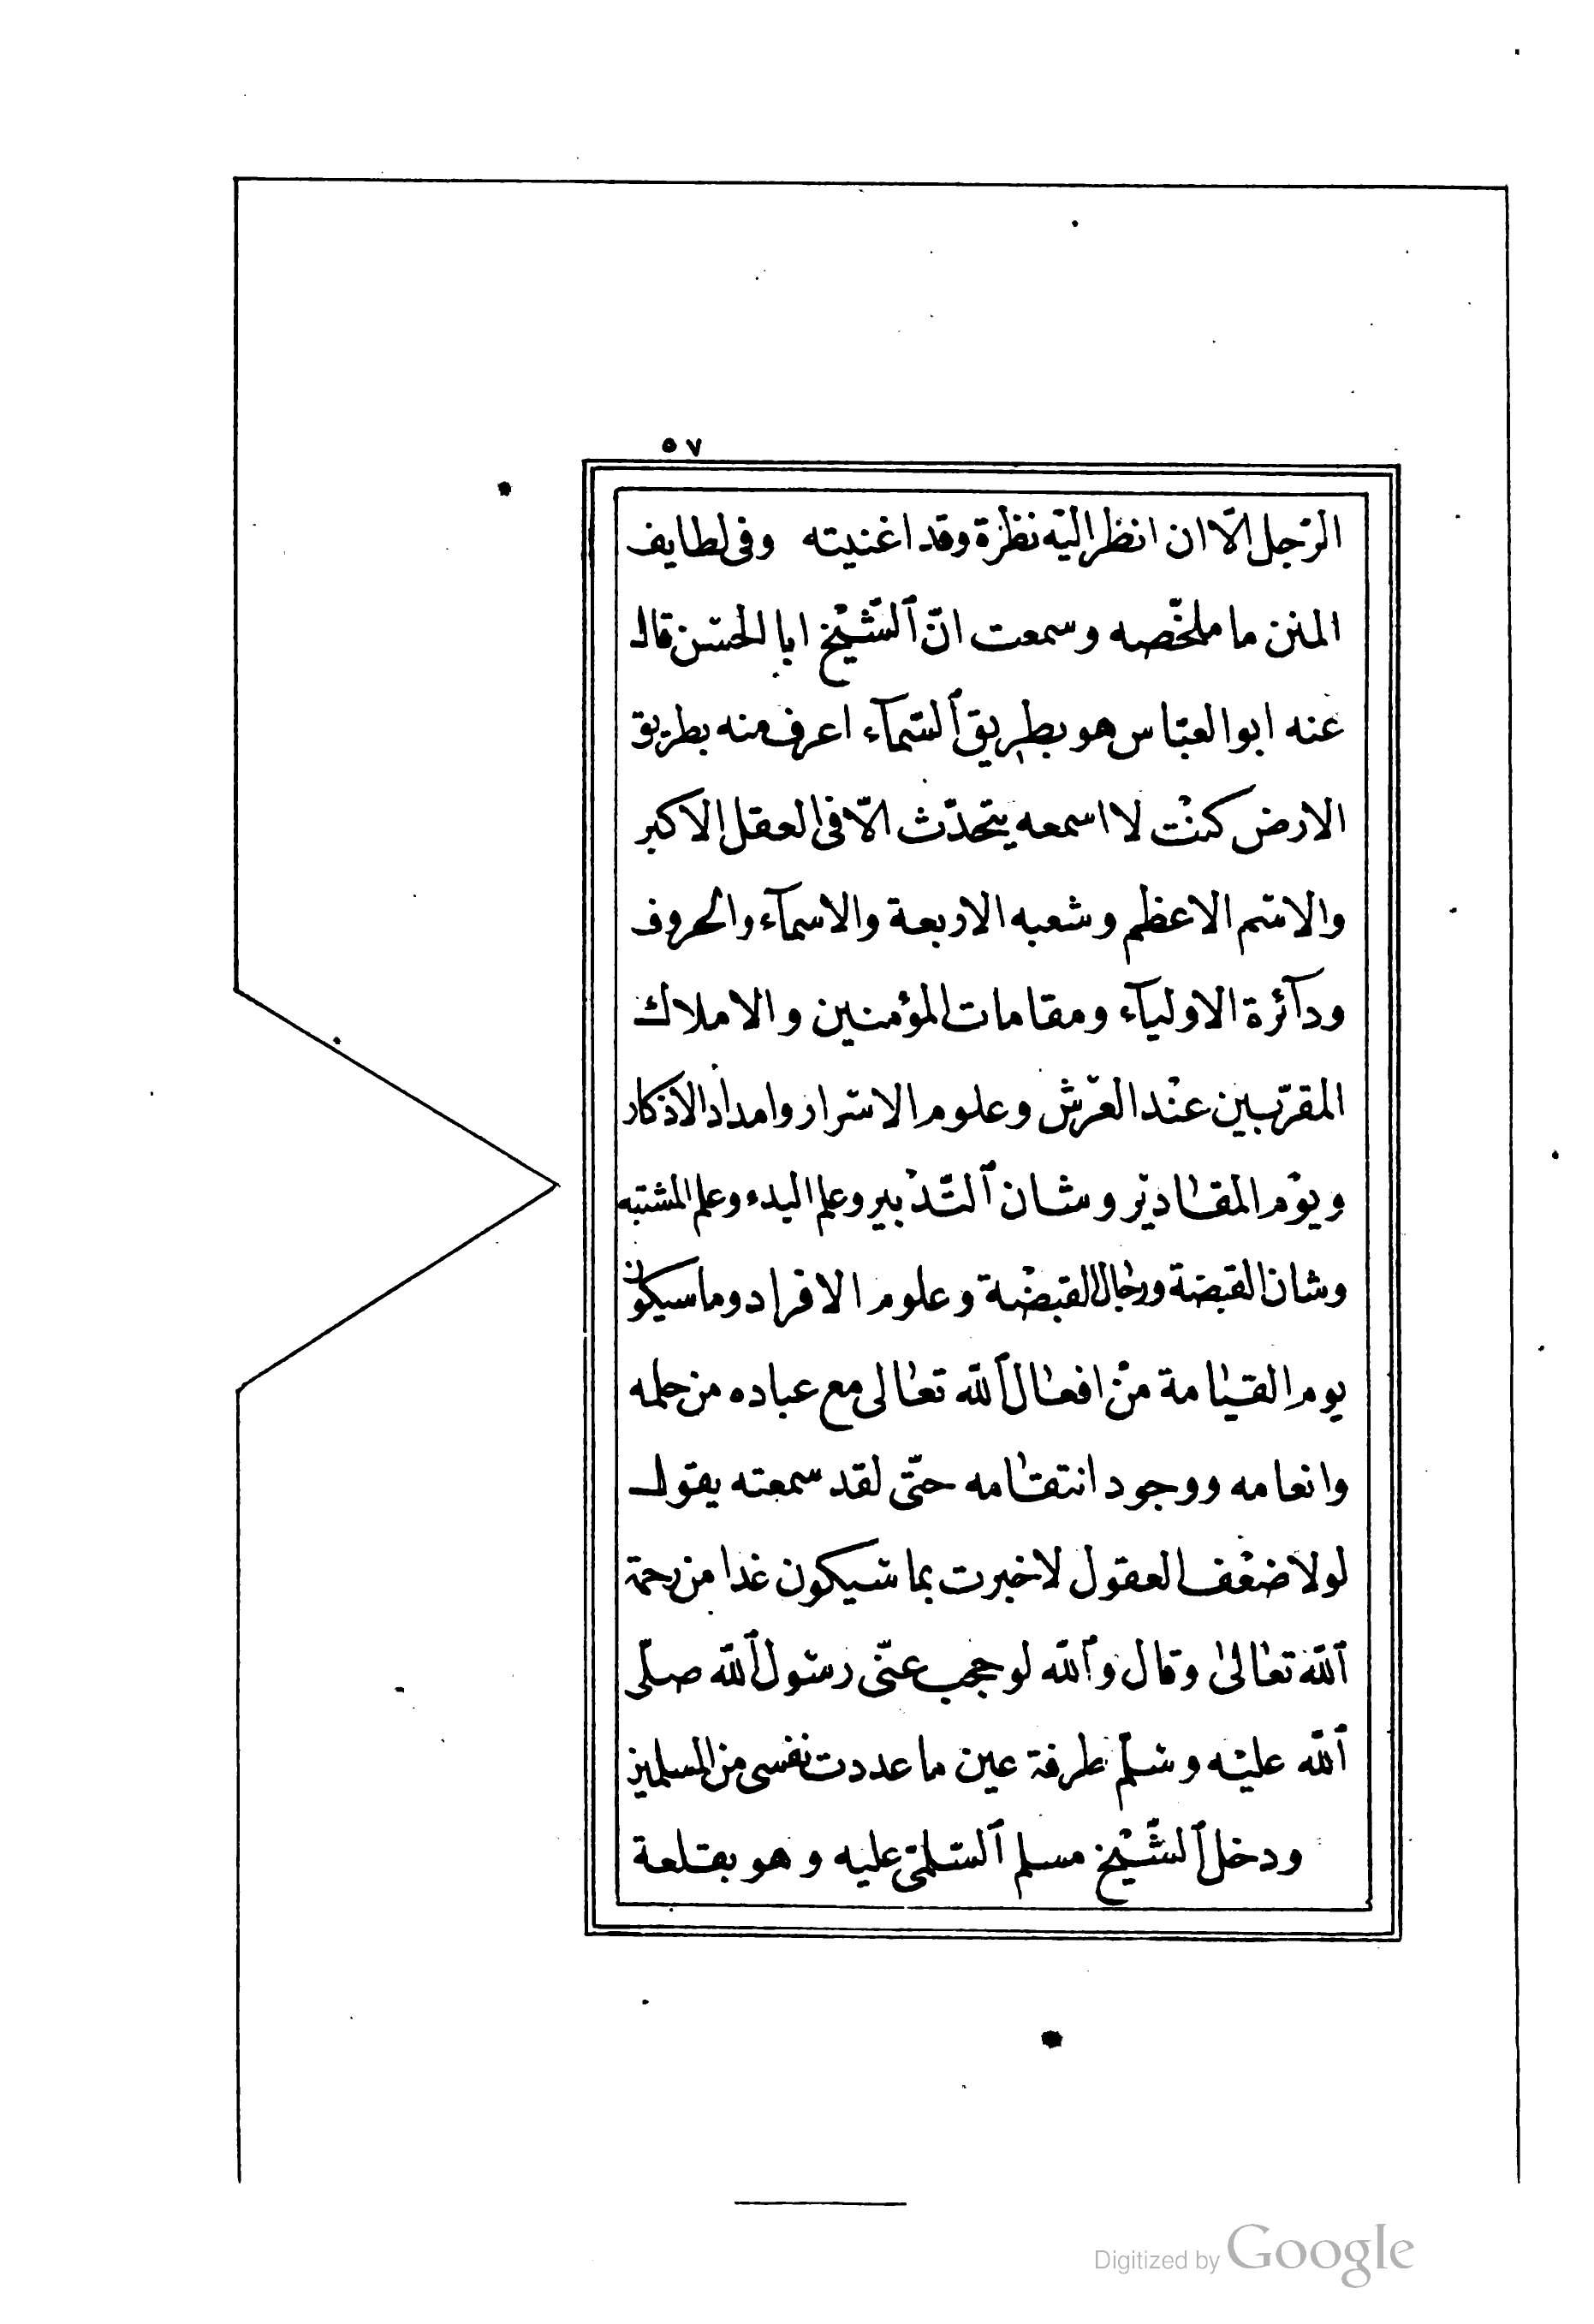 ٥٧
الرّجل الّا ان انظر اليْه نظْرة وقد اغنيته وفى لطايف
المنن ما ملخّصه وسمعت انّ ٱلشّيْخ ابا الحسن قال
عنه ابو العبّاس هو بطريق ٱلسّمآء اعرف منه بطريق
الارض كنْت لا اسمعه يتحدّث الّا فى العقل الاكبر
والاسم الاعظم وشعبه الاربعة والاسمآء والحروف
ودآئرة الاوليآء ومقامات المؤمنين والاملاك
المقرّبين عنْد العرْش وعلوم الاسرار وامداد الاذكار
ويوْم المقادير وشان ٱلتّدْبير وعلم البدء وعلم المشتبه
وشان القبضة ورجال القبضْة وعلوم الافراد وما سيكون
يوم القيامة منْ افعال ٱللّه تعالى مع عباده من حلمه
وانعامه ووجود انتقامه حتّى لقد سمعته يقول
لولا ضعْف العقول لاخبرت بما سيكون غدا من رحمة
ٱللّه تعالىٰ وقال وٱللّه لو حجب عنّى رسول ٱللّه صلّى
ٱللّه عليْه وسلّم طرفة عين ما عددت نفسى من المسلمين
ودخل ٱلشّيْخ مسلم ٱلسّلمىّ عليه وهو بقلعة
Digitized by Google